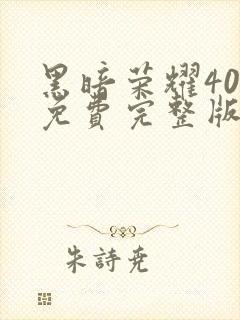 黑暗荣耀40
免費完整版
朱詩尭